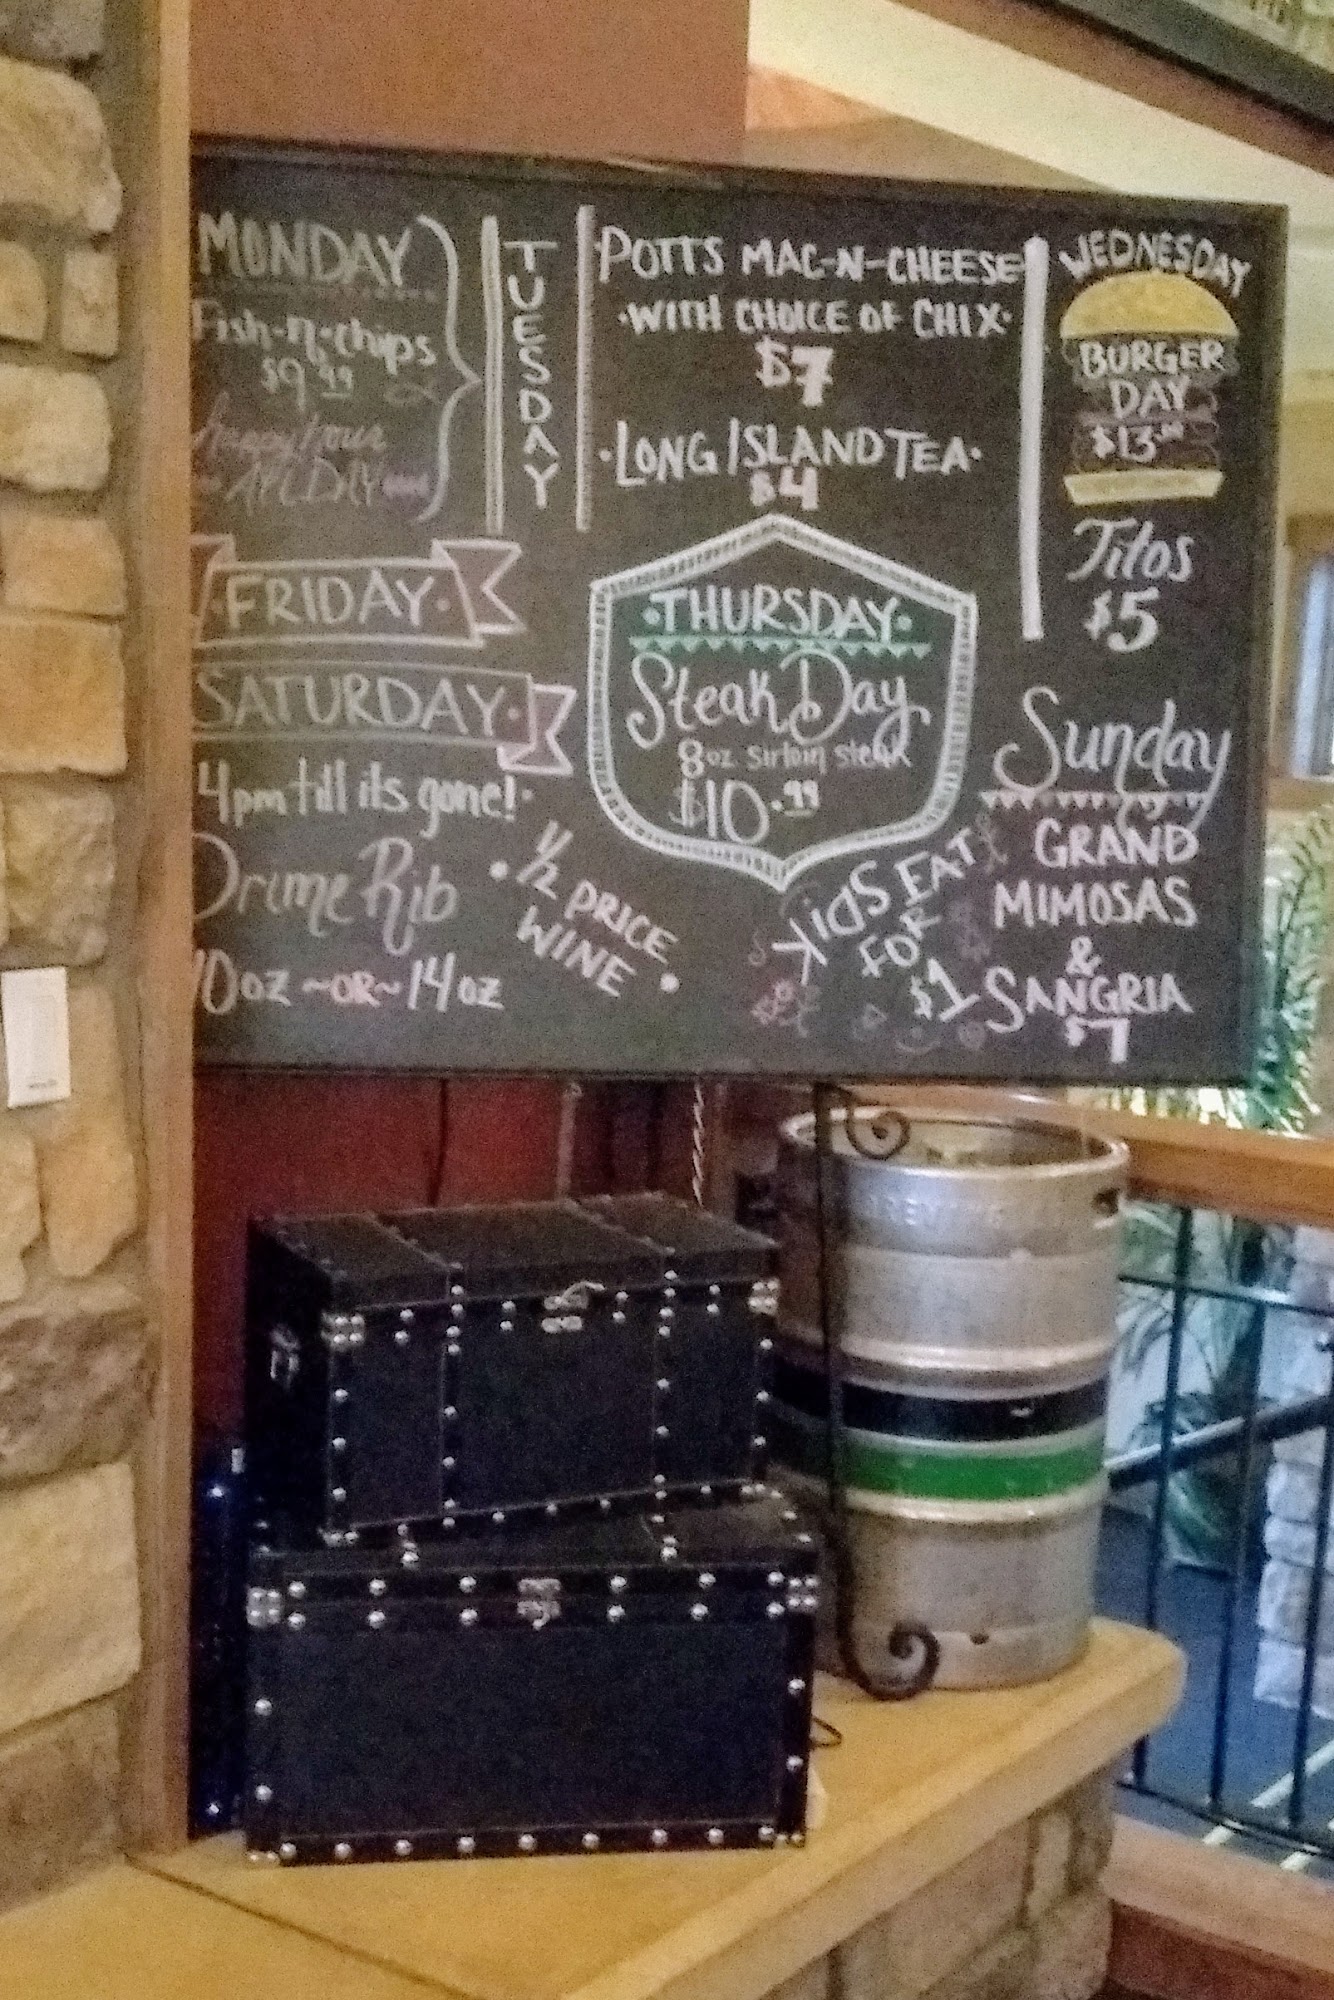 MONDAY
Fish-n-chips
$9.99
happy hour
ALL DAY
TUESDAY
POTTS MAC-N-CHEESE
·WITH CHOICE OF CHIX·
$7
·LONG ISLAND TEA·
$4
WEDNESDAY
BURGER
DAY
$13.00
Titos
$5
·FRIDAY·
SATURDAY·
4pm till its gone!·
Prime Rib
10oz ~OR~ 14oz
·1/2 PRICE
WINE·
·THURSDAY·
Steak Day
8oz sirloin steak
$10.99
KIDS EAT
FOR
$1
Sunday
GRAND
MIMOSAS
&
SANGRIA
$7